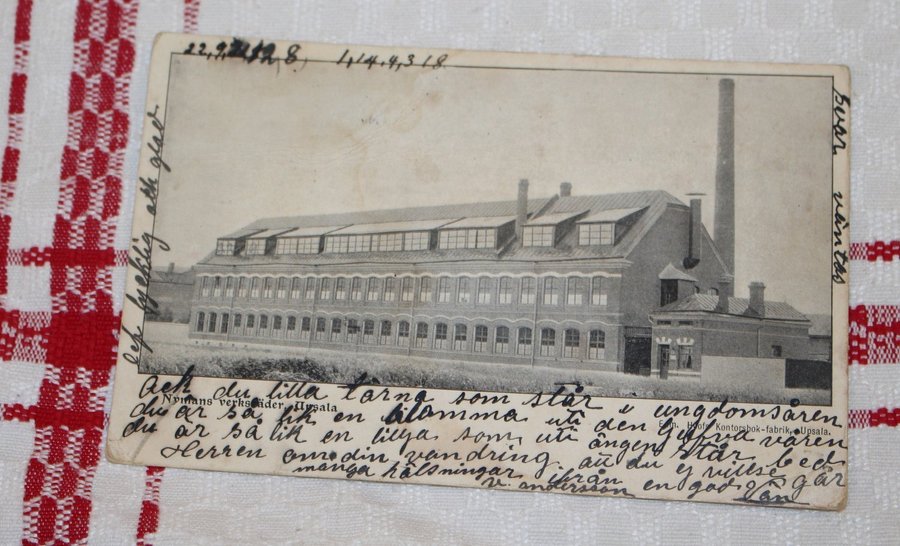 22,9, 28, 1,14,4,318
svar väntas
lycklig och glad
Ack du lilla tärna som står i ungdomsåren
Nymans verkstäder, Upsala
Kontorsbok-fabrik, Upsala.
du är så lik en blomma uti den våren
du är så lik en lilja som uti ängen står bed
Herren om din vandring att du ej vilse går
många hälsningar ifrån
v. andersson en god vän